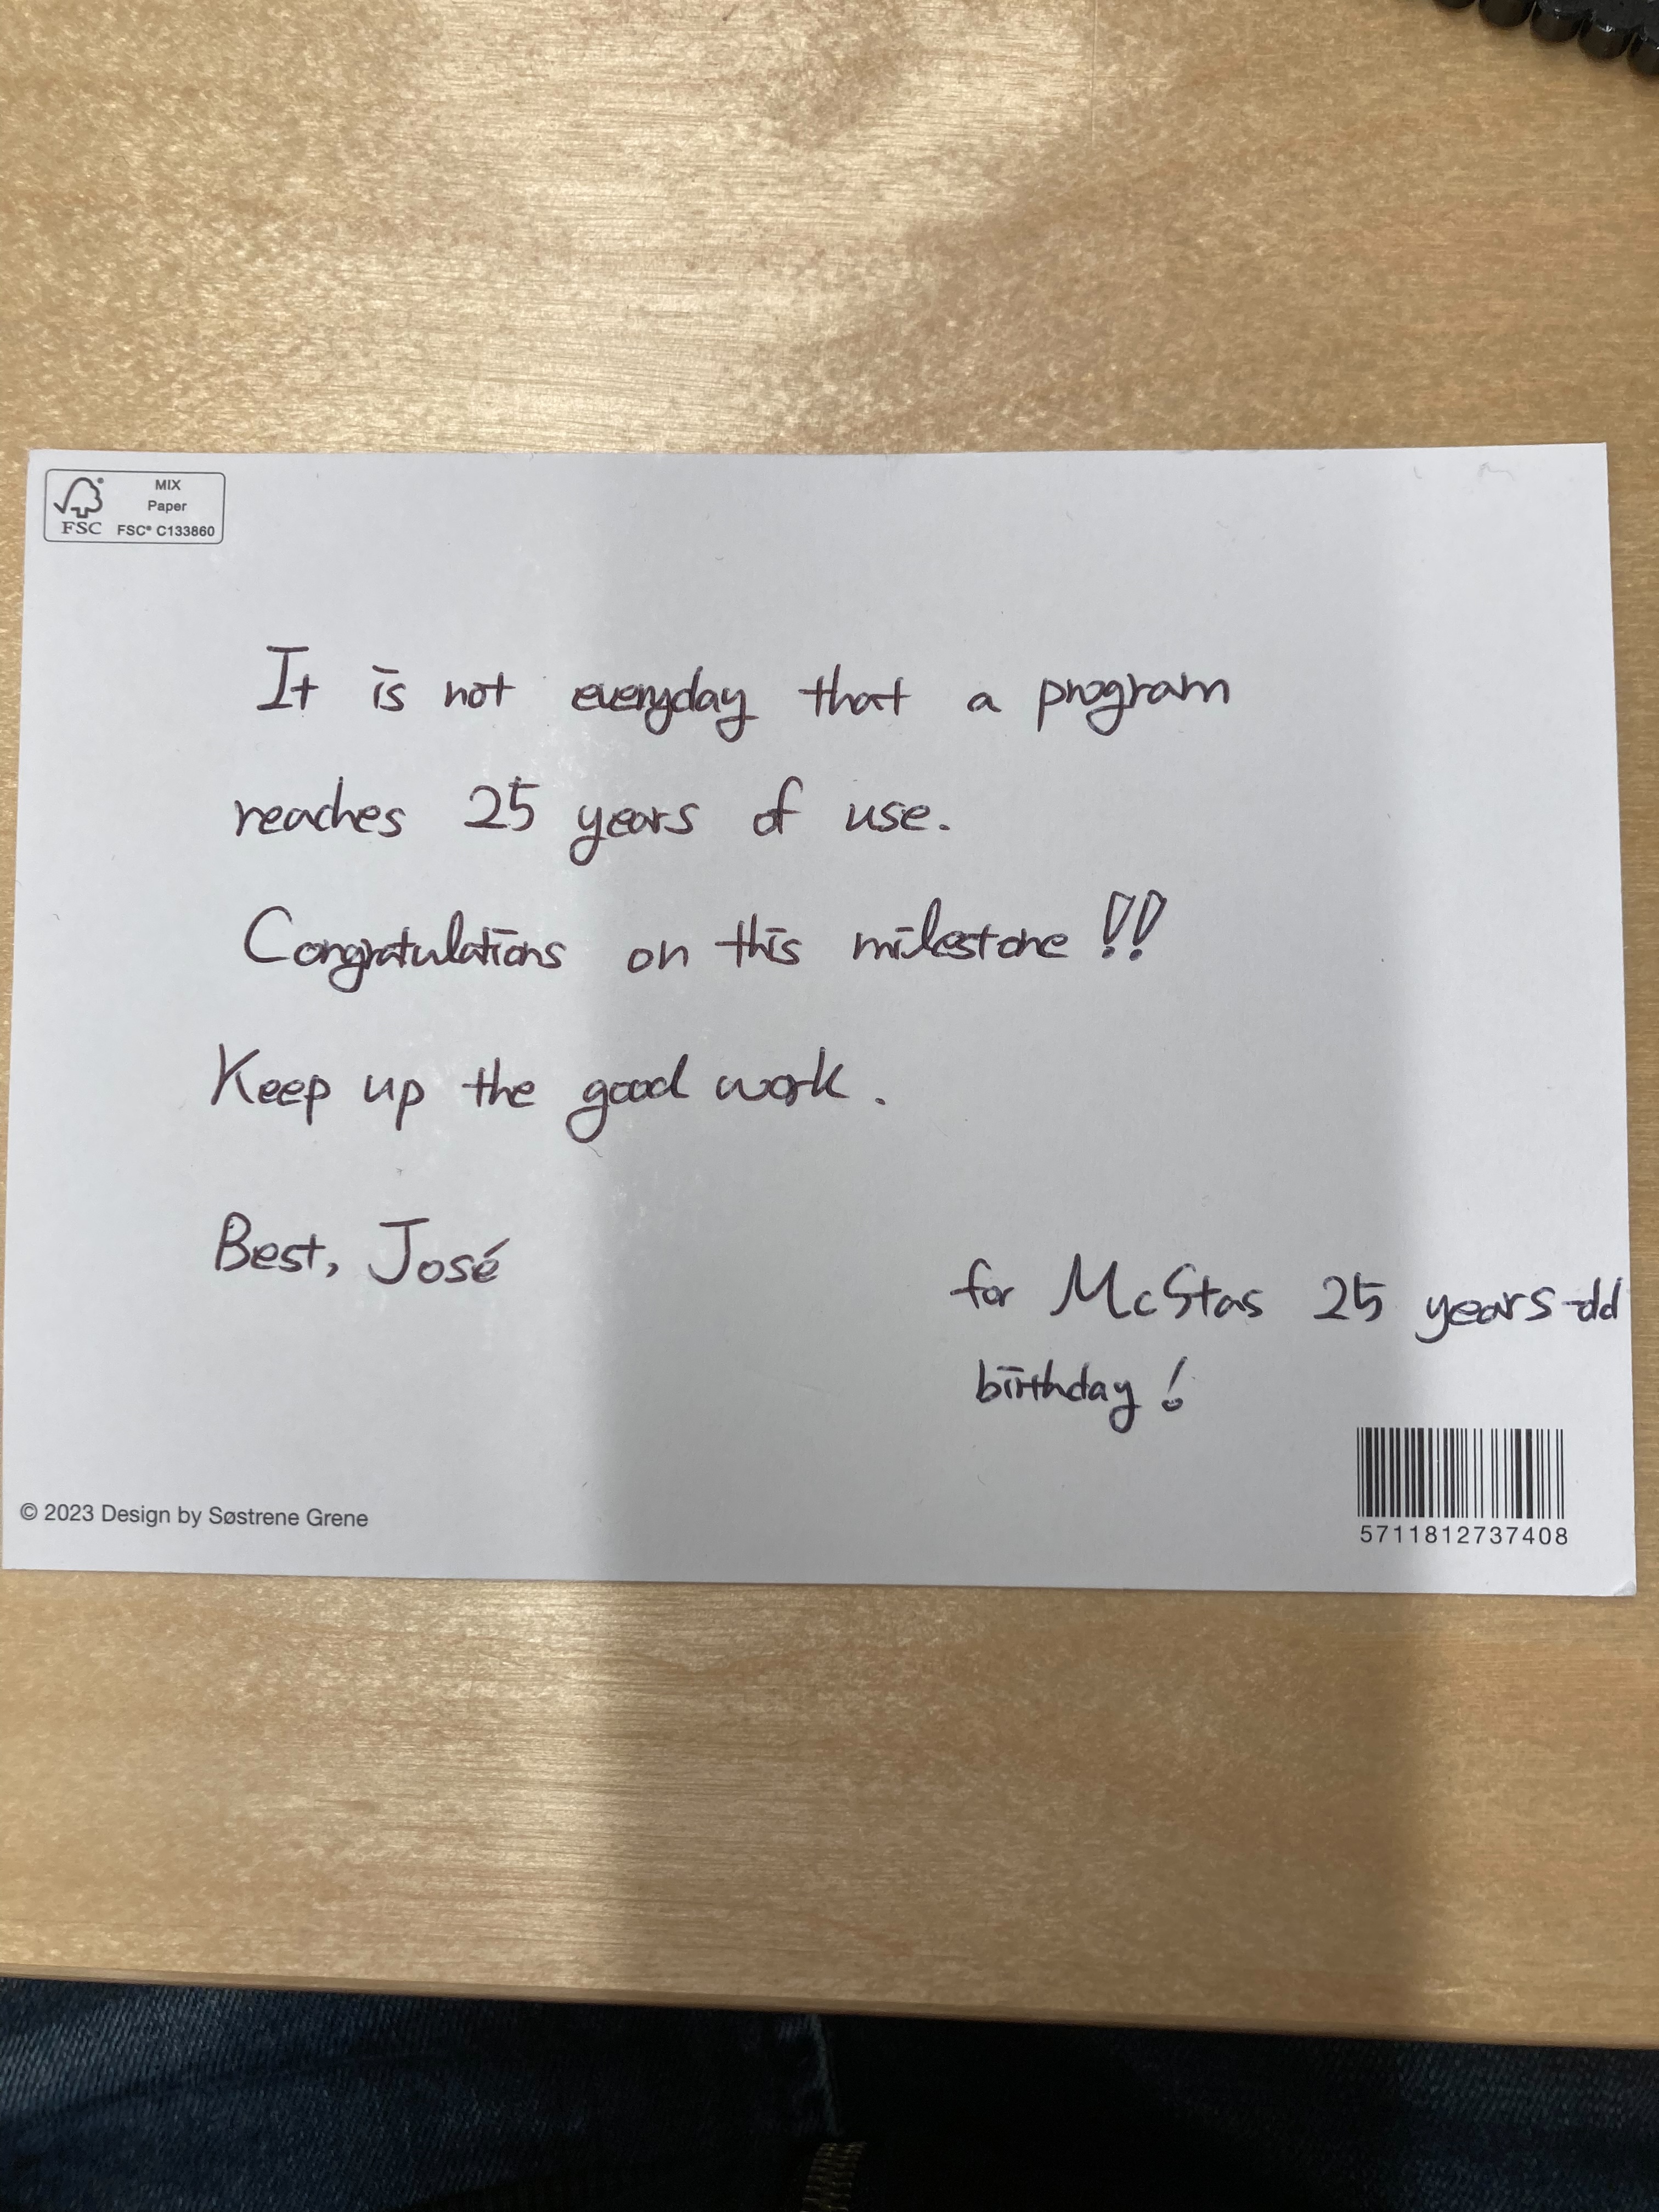 MIX
Paper
FSC FSC® C133860
It is not everyday that a program
reaches 25 years of use.
Congratulations on this milestone!!
Keep up the good work.
Best, José
for McStas 25 years-old
birthday!
© 2023 Design by Søstrene Grene
5711812737408